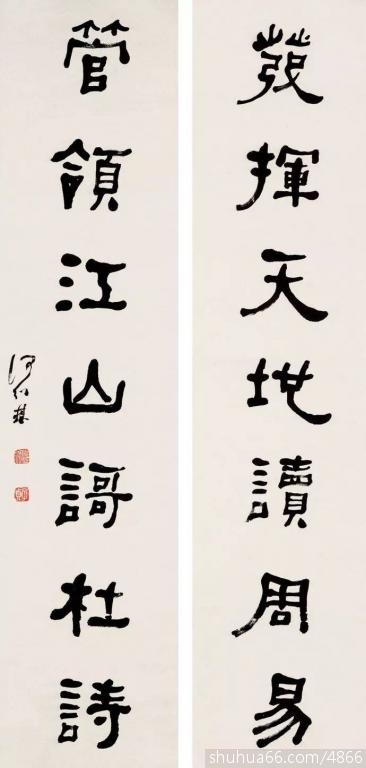 發揮天地讀周易
管領江山謌杜詩
何紹基
shuhua66.com/4866